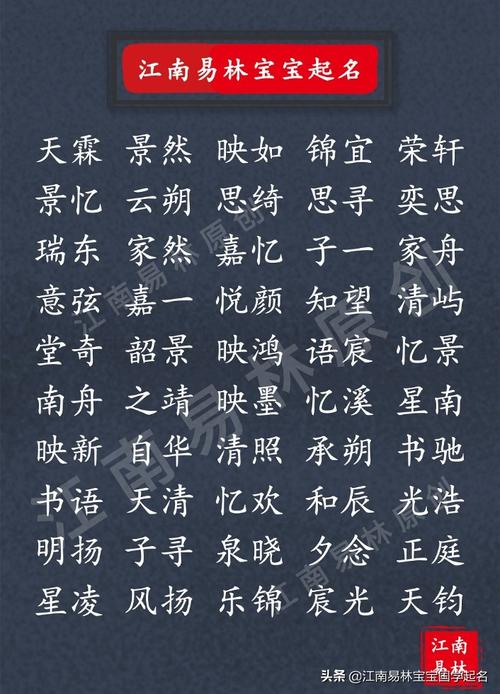 江南易林宝宝起名
天霖 景然 映如 锦宜 荣轩
景忆 云朔 思绮 思寻 奕思
瑞东 家然 嘉忆 子一 家舟
意弦 嘉一 悦颜 知望 清屿
堂奇 韶景 映鸿 语宸 忆景
南舟 之靖 映墨 忆溪 星南
映新 自华 清照 承朔 书驰
书语 天清 忆欢 和辰 光浩
明扬 子寻 泉晓 夕念 正庭
星凌 风扬 乐锦 宸光 天钧
江南易林原创
江南易林原创
江南易林原创
江南
易林
头条 @江南易林宝宝国学起名